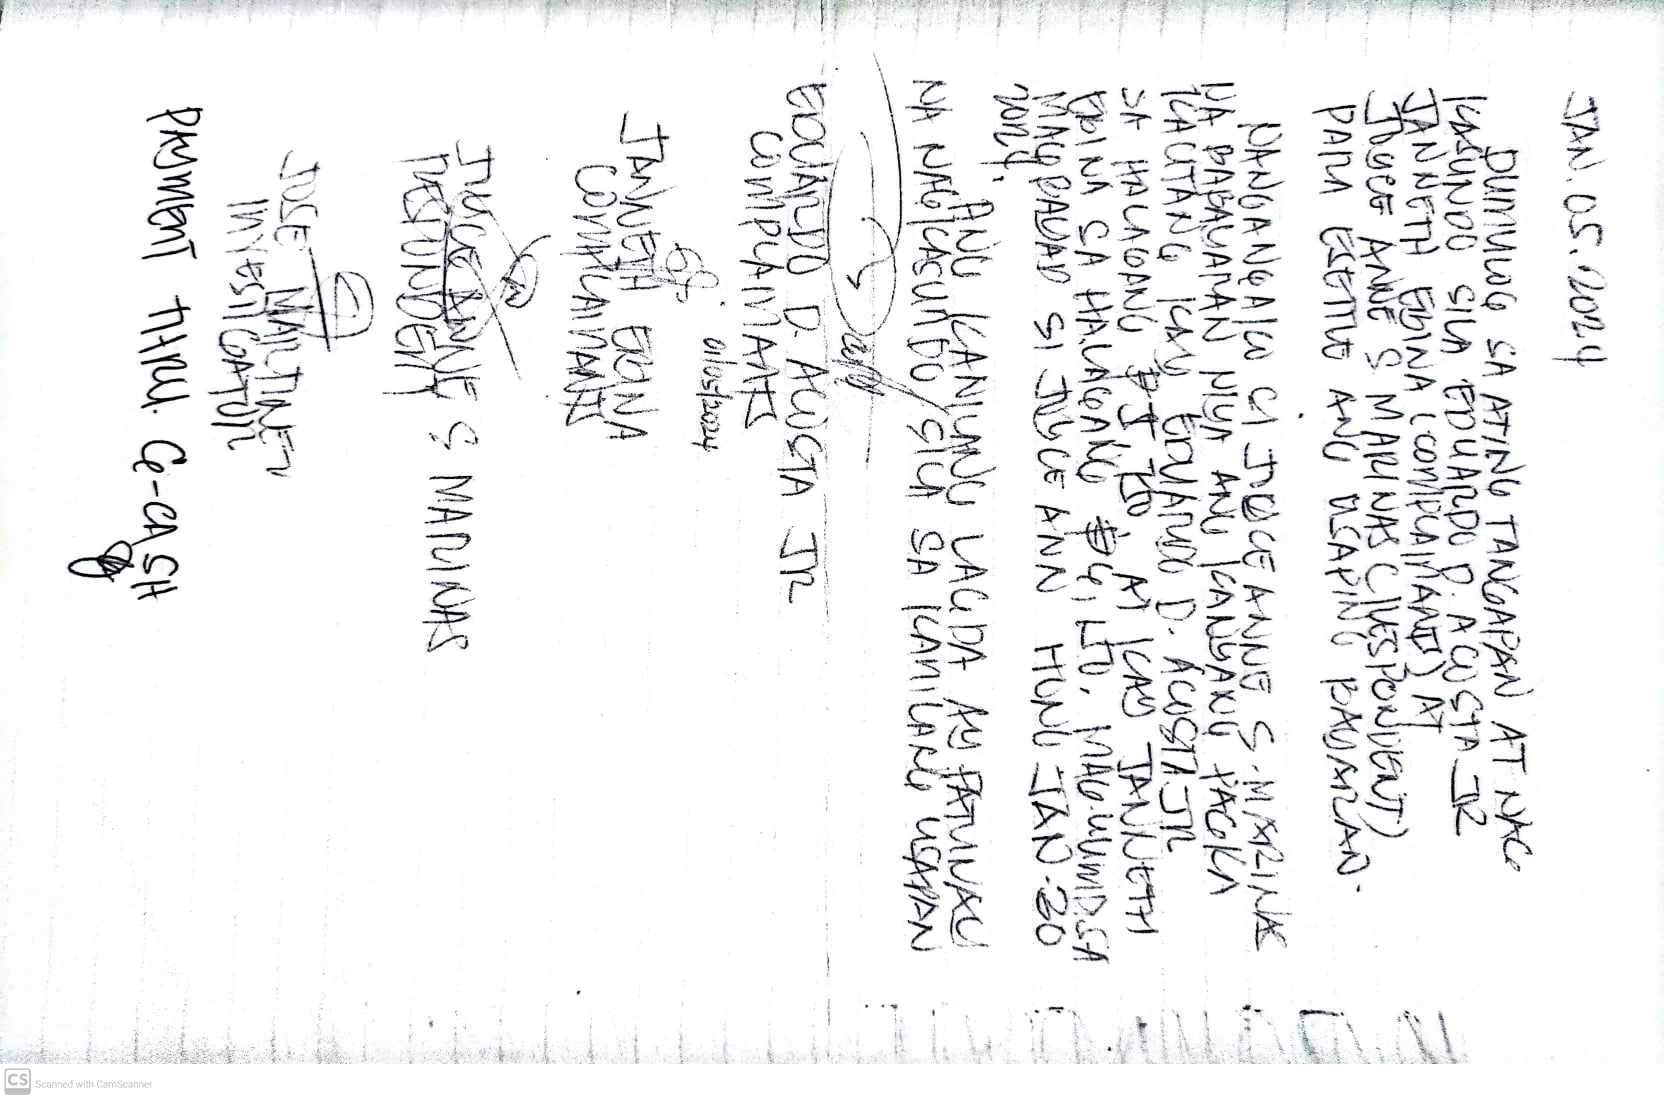 JAN. 05. 2024
DUMULOG SA ATING TANGAPAN AT NAG
KASUNDO SILA EDUARDO D. ACOSTA JR
JANNETH EBINA (COMPLAINANTS) AT
JOYCE ANNE S MARINAS (RESPONDENT)
PARA ESETTLE ANG USAPING BAYARAN.
NANGANGAKO SI JOYCE ANNE S. MARINAS
NA BABAYARAN NIYA ANG KANYANG PAGKA
KAUTANG KAY EDUARDO D. ACOSTA JR
SA HALAGANG AT KAY JANNETH
EBINA SA HALAGANG MAG UUMPISA
MAGBAYAD SI JOYCE ANN HUNG JAN. 30
2024.
ANG KANILANG LAGDA AY PATUNAY
NA NAGKASUNDO SILA SA KANILANG USAPAN
EDUARDO D. ACOSTA JR
COMPLAINANTS
01/05/2024
JANNETH EBINA
COMPLAINANTS
JOYCE ANNE S MARINAS
RESPONDENT
JOSE MARTINEZ
INVESTIGATOR
PAYMENT THRU. G-CASH
CS Scanned with CamScanner